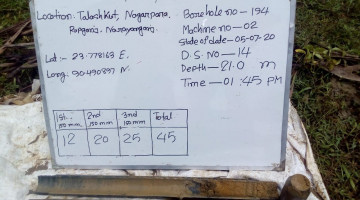 Location: Talashkut, Nagarpara,
Rupganj, Narayanganj.
Lat:- 23.778169 E.
Long:- 90.490897 N.
Borehole no - 194
Machine no - 02
State of date - 05-07-20
D.S. No - 14
Depth - 21.0 m
Time - 01:45 PM
1st. 150mm 2nd 150mm 3nd 150mm Total
12 20 25 45